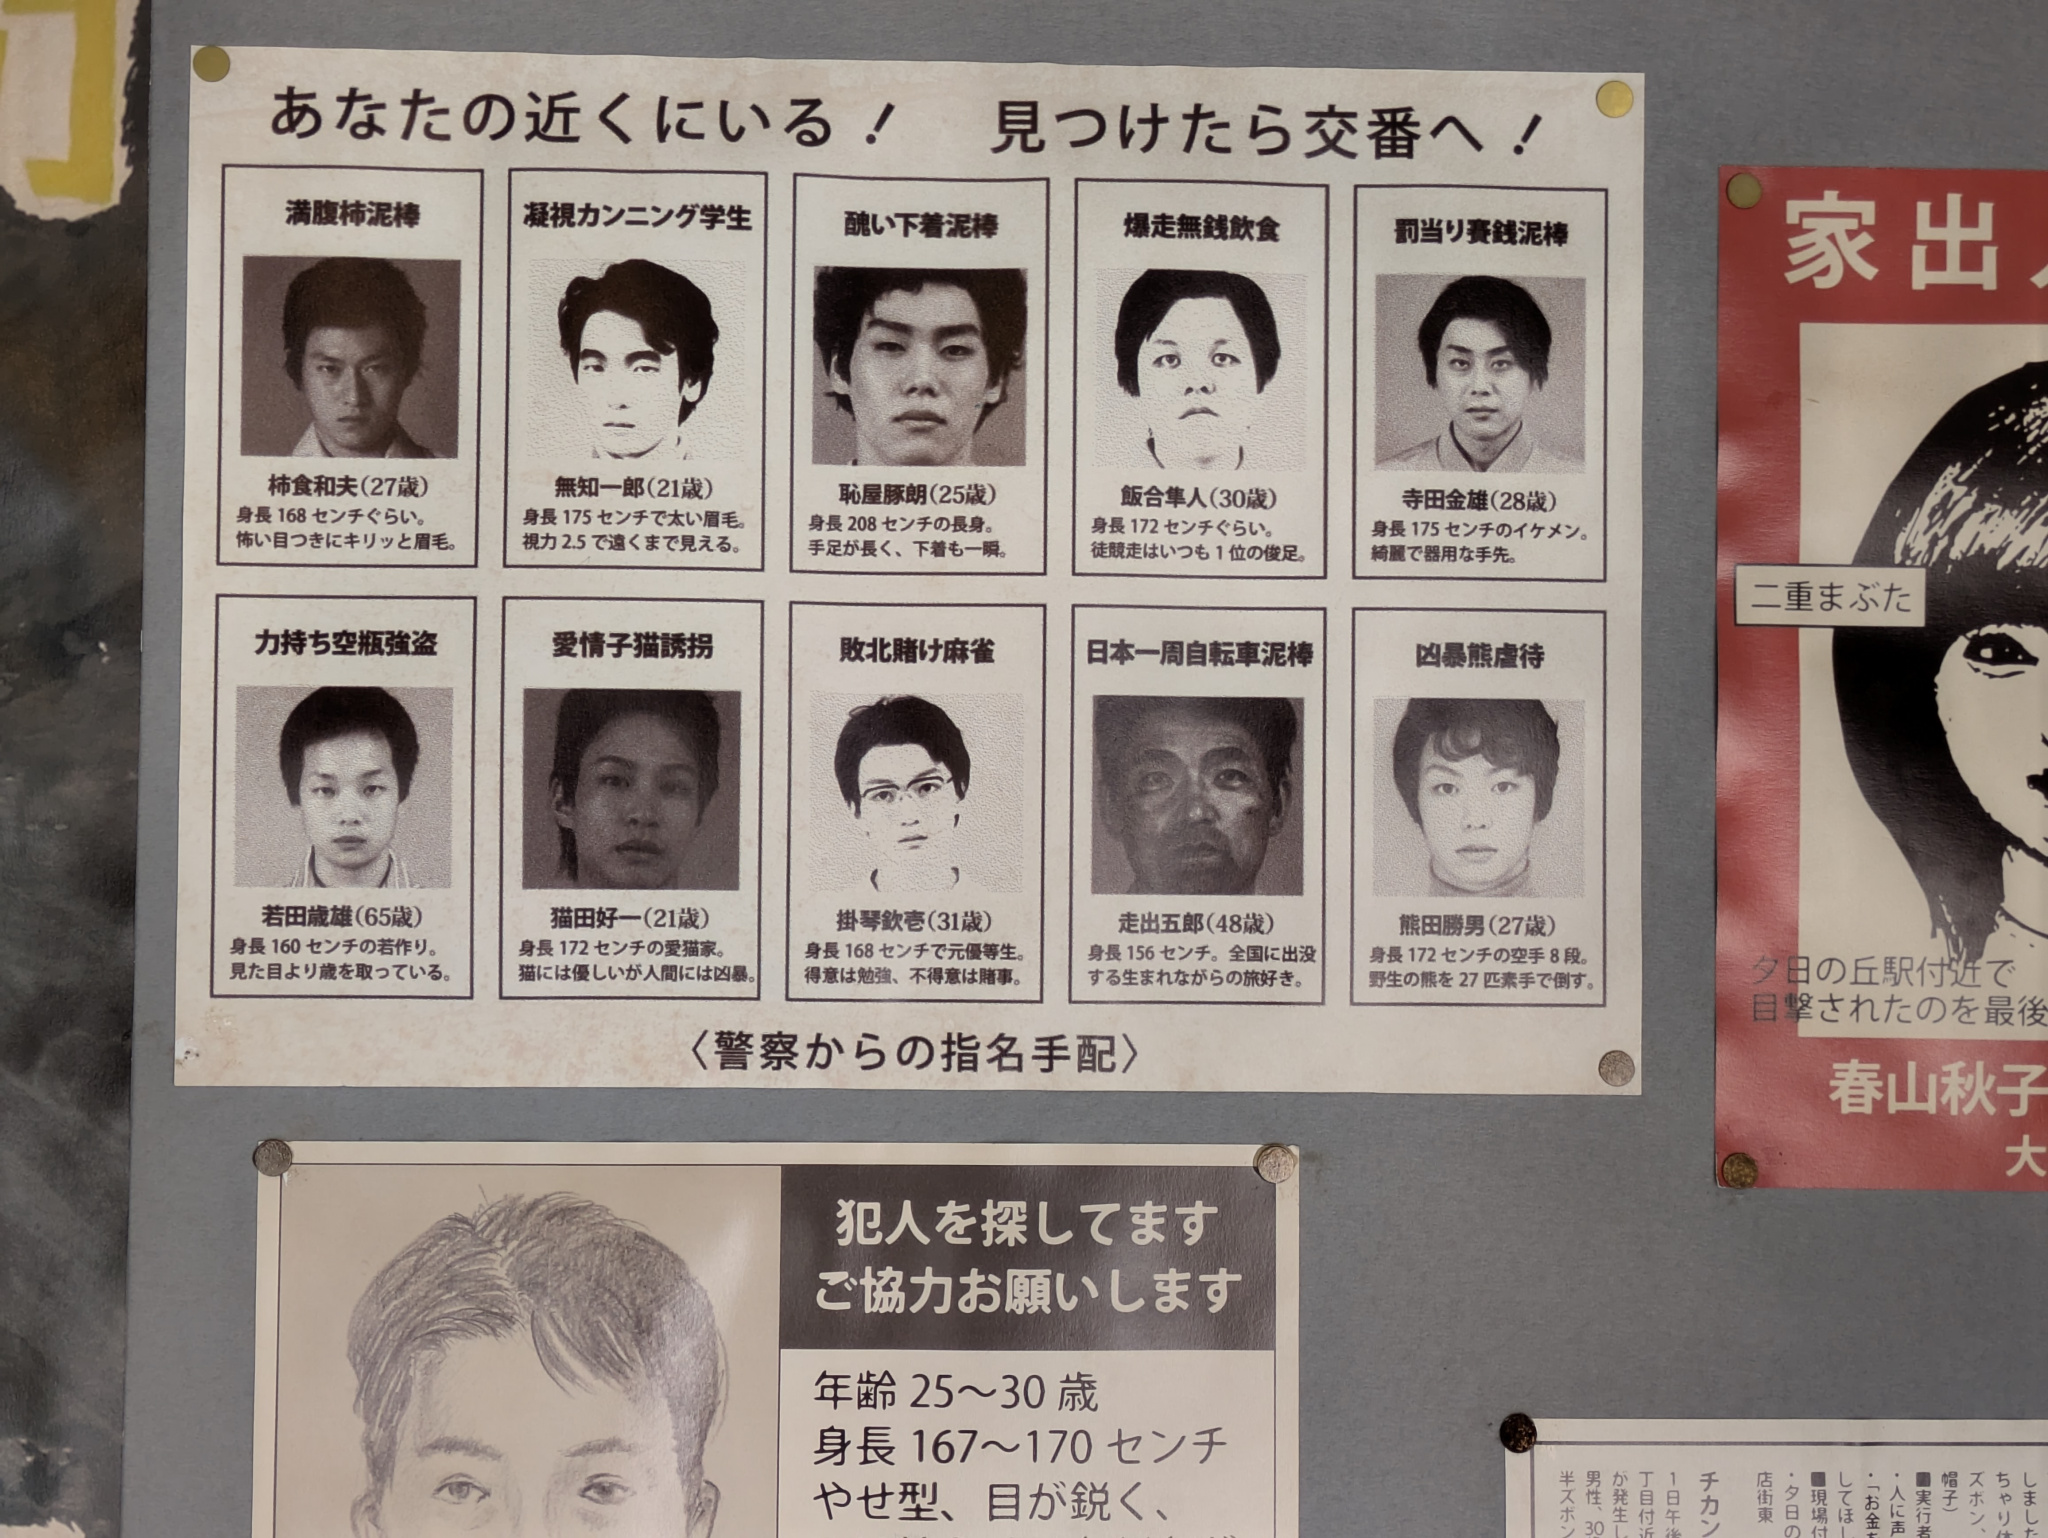 あなたの近くにいる！　見つけたら交番へ！
満腹柿泥棒
柿食和夫(27歳)
身長 168 センチぐらい。
怖い目つきにキリッと眉毛。
凝視カンニング学生
無知一郎(21歳)
身長 175 センチで太い眉毛。
視力 2.5 で遠くまで見える。
醜い下着泥棒
恥屋豚朗(25歳)
身長 208 センチの長身。
手足が長く、下着も一瞬。
爆走無銭飲食
飯合隼人(30歳)
身長 172 センチぐらい。
徒競走はいつも 1 位の俊足。
罰当り賽銭泥棒
寺田金雄(28歳)
身長 175 センチのイケメン。
綺麗で器用な手先。
力持ち空瓶強盗
若田歳雄(65歳)
身長 160 センチの若作り。
見た目より歳を取っている。
愛情子猫誘拐
猫田好一(21歳)
身長 172 センチの愛猫家。
猫には優しいが人間には凶暴。
敗北賭け麻雀
掛琴欽壱(31歳)
身長 168 センチで元優等生。
得意は勉強、不得意は賭事。
日本一周自転車泥棒
走出五郎(48歳)
身長 156 センチ。全国に出没
する生まれながらの旅好き。
凶暴熊虐待
熊田勝男(27歳)
身長 172 センチの空手 8 段。
野生の熊を 27 匹素手で倒す。
〈警察からの指名手配〉
家出
二重まぶた
夕日の丘駅付近で
目撃されたのを最後
春山秋子
大
犯人を探してます
ご協力お願いします
年齢 25〜30 歳
身長 167〜170 センチ
やせ型、目が鋭く、
しました
ちゃり体
ズボン、
帽子）
■実行者
・人に声
・「お金を
してほし
■現場付
・夕日の
店街東
チカン
1日午後
丁目付近
が発生し
男性、30
半ズボン